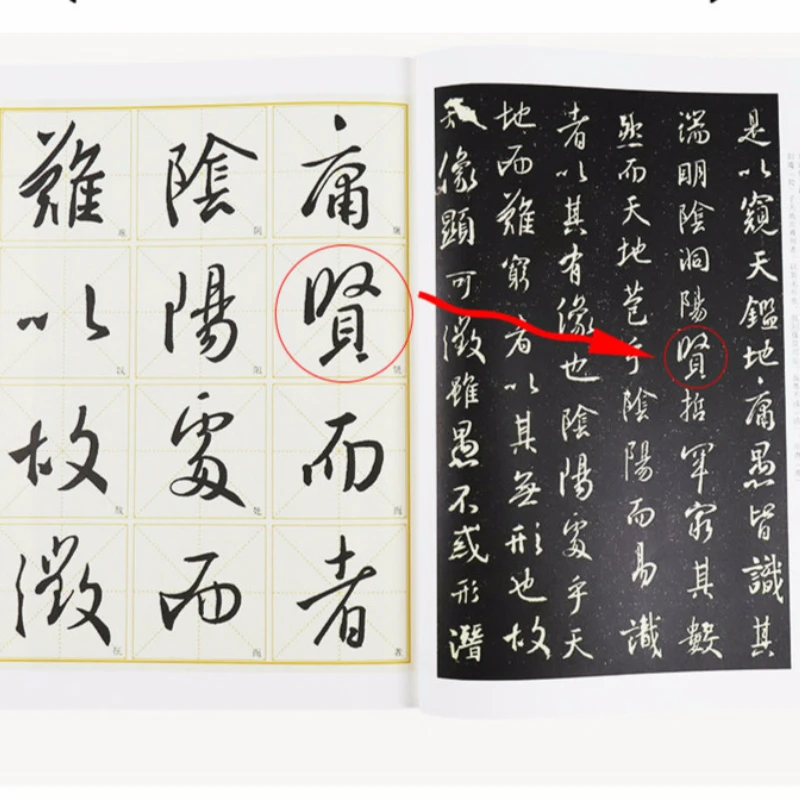 是以窺天鑑地庸愚皆識其
端明陰洞陽賢哲罕窮其數
然而天地苞乎陰陽而易識
者以其有像也陰陽處乎天
地而難窮者以其無形也故
像顯可徵雖愚不惑形潛
庸賢而者
陰陽處而
難以故徵